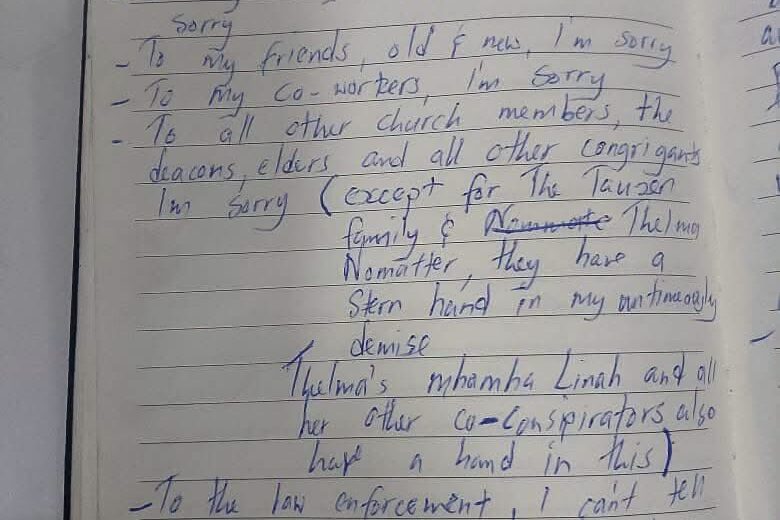 Sorry
- To my friends, old & new, I'm sorry
- To my co-workers, I'm sorry
- To all other church members, the
deacons, elders and all other congrigants
I'm sorry (except for The Tauzen
family & Thelma
Nomatter, they have a
Stern hand in my untimeously
demise
Thelma's mhamha Linah and all
her other co-conspirators also
have a hand in this)
- To the law enforcement, I can't tell